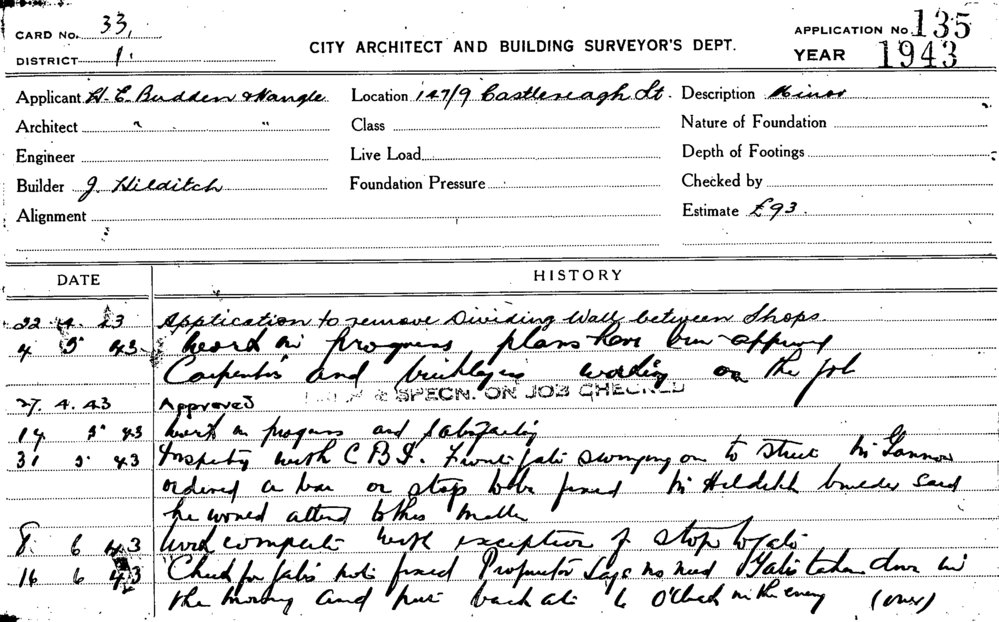 CARD No. 33,
APPLICATION No. 135
DISTRICT 1.
CITY ARCHITECT AND BUILDING SURVEYOR'S DEPT.
YEAR 1943
Applicant H. E. Budden & Nangle Location 147/9 Castlereagh St. Description Minor
Architect " " Class Nature of Foundation
Engineer Live Load Depth of Footings
Builder J. Hilditch Foundation Pressure Checked by
Alignment Estimate £93.
DATE HISTORY
22 4. 43 Application to remove Dividing Wall between Shops.
4 5 43 Work in progress plans have been approved
Carpenters and bricklayers working on the job
& SPECN. ON JOB CHECKED
27. 4. 43 Approved
14 5 43 Work in progress and satisfactory
31 5 43 Inspecting with C B I. Front gate swinging on to street Mr
ordered a bar or stop to be fixed Mr Hilditch builder said
he would attend to this matter
8. 6 43 Work complete with exception of stop to gate
16 6 43 Check for gate not fixed Proprietor says no need Gate taken down in
the morning and put back at 6 O'Clock in the evening (over)